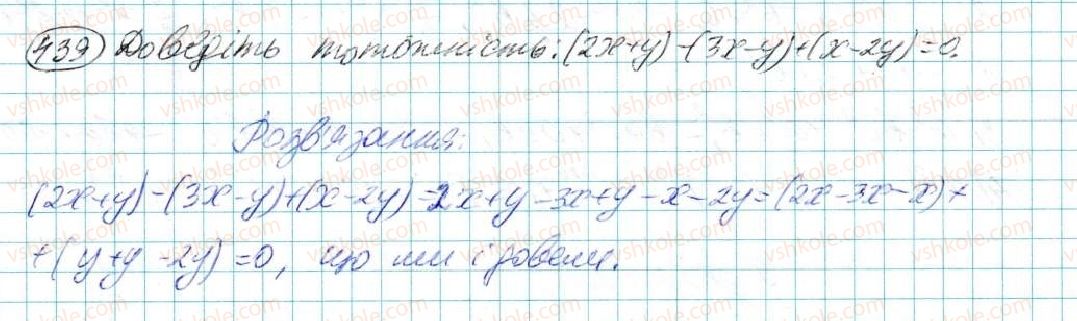 439 Доведіть тотожність: (2x+y)-(3x-y)+(x-2y)=0.
Розв'язання:
(2x+y)-(3x-y)+(x-2y)=2x+y-3x+y-x-2y=(2x-3x-x)+
+(y+y-2y)=0, що ми і довели.